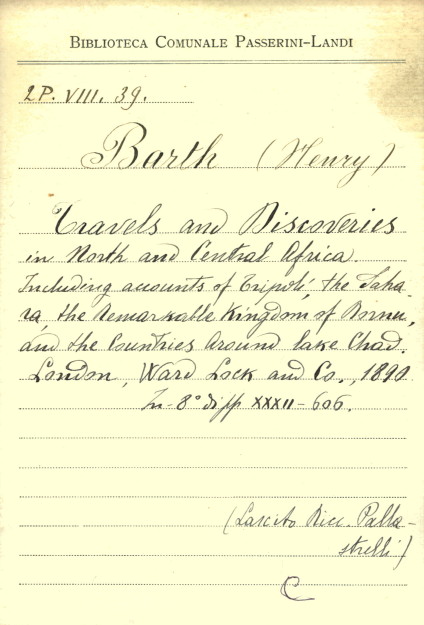 BIBLIOTECA COMUNALE PASSERINI-LANDI
2P. VIII. 39.
Barth (Henry)
Travels and Discoveries
in North and Central Africa.
Including accounts of Tripoli, the Saha-
ra, the Remarkable Kingdom of Bornu,
and the Countries Around lake Chad.
London, Ward Lock and Co., 1890
In-8° di pp XXXII-606.
(Lascito Ricc. Palla-
strelli)
C